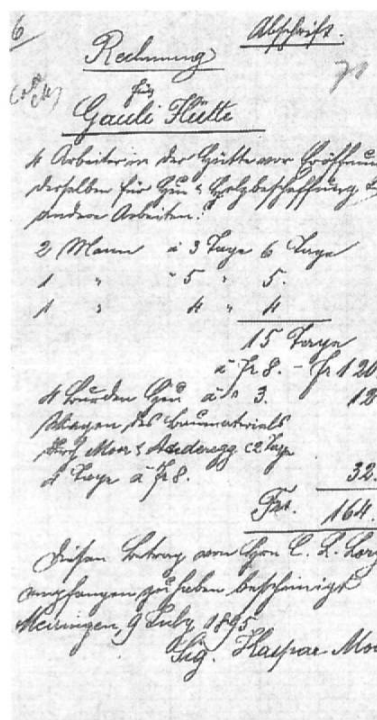 6
Abschrift.
Rechnung
70
für
Gauli Hütte
4 Arbeiter in der Hütte vor Eröffnun
derselben für Heu & Holzbeschaffung &
andere Arbeiten:
2 Mann à 3 Tage 6 Tage
1 " " 5 " 5.
1 " 4 " 4
15 Tage
à Fr 8. – Fr 120
4 Burden Heu à " 3. 12
des Baumaterials
Moor & Anderegg 2 Tage
4 Tage à Fr 8. 32.
Fr. 164.
Diesen Betrag von Hrn C. L. Lory
empfangen zu haben bescheinigt
Meiringen, 9 July 1895
Sig. Kaspar Moo